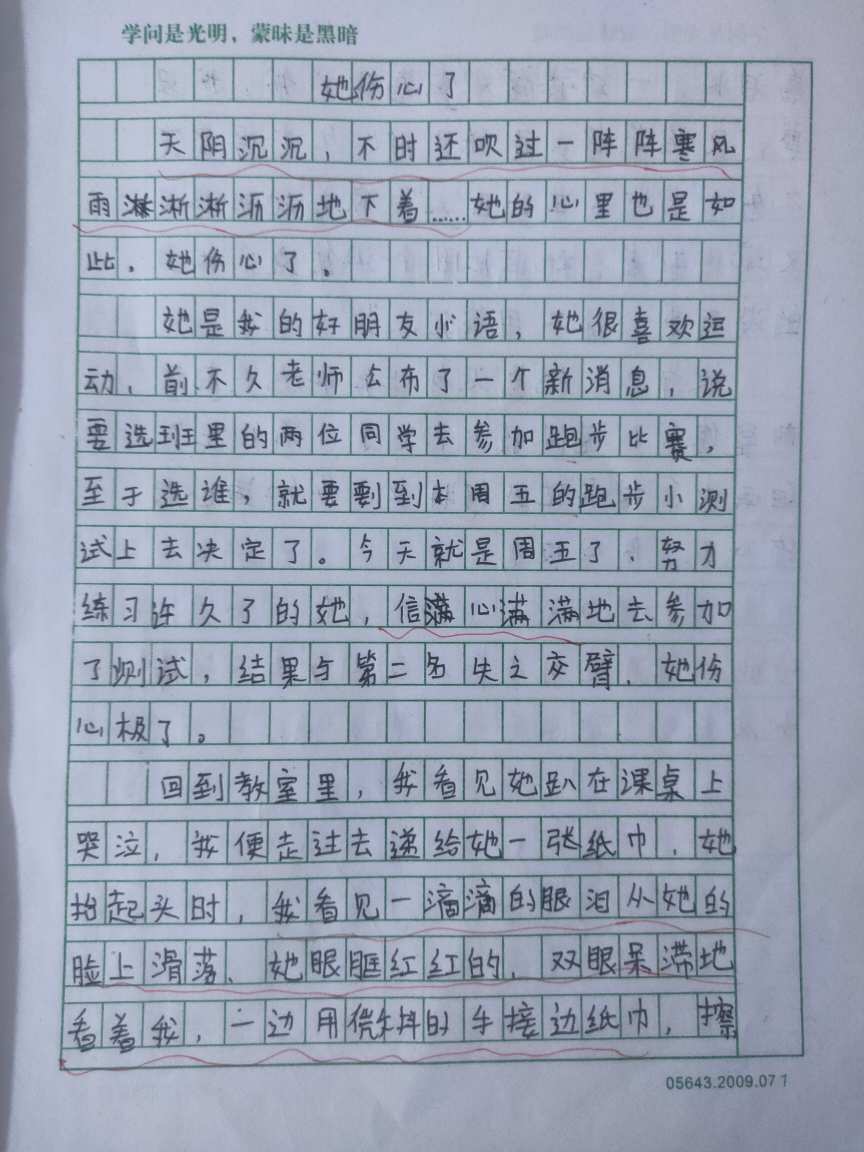 学问是光明，蒙昧是黑暗
她伤心了
天阴沉沉，不时还吹过一阵阵寒风
雨淅淅沥沥地下着……她的心里也是如
此，她伤心了。
她是我的好朋友小语，她很喜欢运
动，前不久老师公布了一个新消息，说
要选班里的两位同学去参加跑步比赛，
至于选谁，就要到本周五的跑步小测
试上去决定了。今天就是周五了，努力
练习许久了的她，信心满满地去参加
了测试，结果与第二名失之交臂，她伤
心极了。
回到教室里，我看见她趴在课桌上
哭泣，我便走过去递给她一张纸巾，她
抬起头时，我看见一滴滴的眼泪从她的
脸上滑落，她眼眶红红的，双眼呆滞地
看着我，一边用的手接过纸巾，擦
05643.2009.07